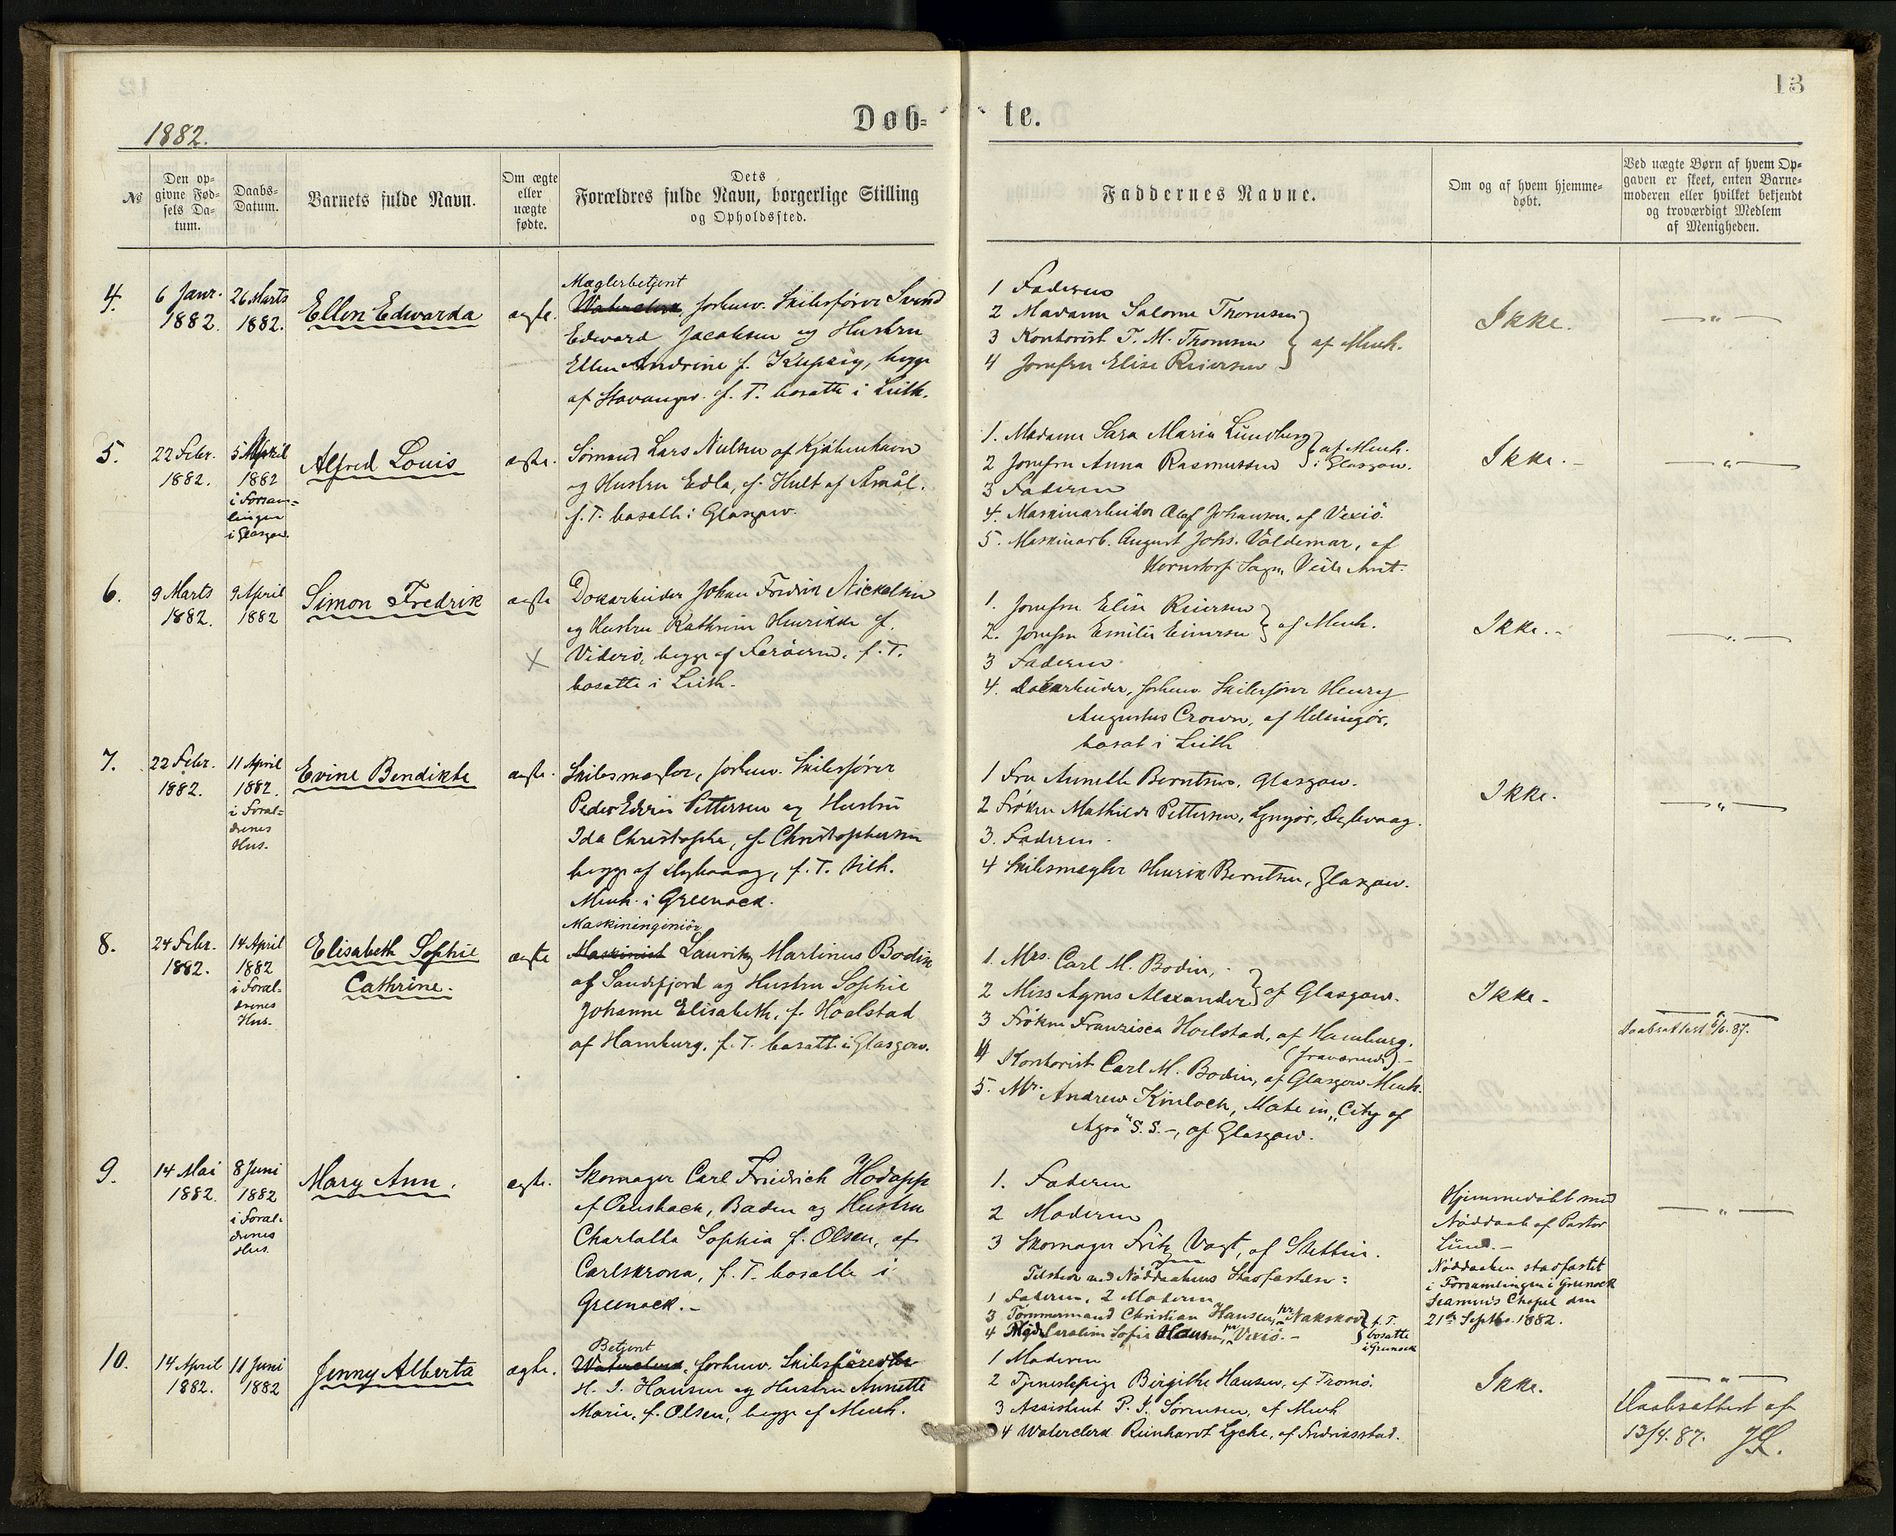 13
Døb-
te.
1882.
№
Den op-
givne Fød-
sels Da-
tum.
Daabs-
Datum.
Barnets fulde Navn.
Om ægte
eller
uægte
fødte.
Dets
Forældres fulde Navn, borgerlige Stilling
og Opholdssted.
Faddernes Navne.
Om og af hvem hjemme-
døbt.
Ved uægte Børn af hvem Op-
gaven er skeet, enten Barne-
moderen eller hvilket bekjendt
og troværdigt Medlem
af Menigheden.
4.
6 Janr.
1882.
26 Marts
1882.
Ellen Edwarda
ægte.
Mæglerbetjent
Waterclerk, forhenv. Skibsfører Svend
Edward Jacobsen og Hustru
Ellen Andrine f. Kupsig, begge
af Stavanger f. T. bosatte i Leith.
1 Faderen
2 Madame Salome Thomsen
3 Kontorist T. M. Thomsen } af Menh.
4 Jomfru Elise Reiersen
Ikke.
— " —
5.
22 Febr.
1882.
5 April
1882
i Forsam-
lingen
i Glasgow.
Alfred Louis
ægte.
Sømand Lars Nielsen af Kjøbenhavn
og Hustru Edla, f. Hult af Åmål.
f. T. bosatte i Glasgow.
1. Madame Sara Maria Lundberg } af Menh.
2 Jomfru Anna Rasmussen } i Glasgow.
3 Faderen
4. Maskinarbeider Olaf Johanson, af Vexiö
5. Maskinarb. August Johs. Valdemar, af
Hornstorf Sogn, Veile Amt.
Ikke.-
— " —
6.
9 Marts
1882.
9 April
1882
Simon Fredrik
ægte
Dokarbeider Johan Fredrik Nickelsen
og Hustru Kathrine Henrikke f.
X
Viderö, begge af Færöerne, f. T.
bosatte i Leith.
1. Jomfru Elise Reiersen
2. Jomfru Emilie Einersen } af Menh.
3 Faderen
4. Dokarbeider, forhenv. Skibsfører Henry
Augustus Crown, af Helsingör,
bosat i Leith
Ikke.-
— " —
7.
22 Febr.
1882.
11 April
1882.
i Foræl-
drenes
Hus.
Evine Bendikte
ægte.
Skibsmægler, forhenv. Skibsfører
Peder Edvin Pettersen og Hustru
Ida Christophe, f. Christophersen
begge af Dybvaag, f. T. tilh.
Menh. i Greenock.
1 Fru Annette Berntsen, Glasgow.
2 Frøken Mathilde Pettersen, Lyngör, Dybvaag.
3. Faderen.
4 Skibsmegler Henrik Berntsen, Glasgow.
Ikke.
— " —
8.
24 Febr.
1882.
14 April
1882
i Foræl-
drenes
Hus.
Elisabeth Sophie
Cathrine.
ægte
Maskiningeniör
Maskinist Lauritz Martinus Bodin
af Sandefjord og Hustru Sophie
Johanne Elisabeth, f. Hoelstad
af Hamburg. f. T. bosatte i Glasgow.
1. Mrs. Carl M. Bodin,
2 Miss Agnes Alexander } af Glasgow.
3 Frøken Franzisca Hoelstad, af Hamburg.
(fraværende).-
4 Kontorist Carl M. Bodin, af Glasgow Menh.
5. Mr. Andrew Kinloch, Mate in "City of
Agra" S. S. -, af Glasgow.
Ikke -
— " —
Daabsattest /6. 87.
9.
14 Mai
1882.
8 Juni
1882
i Foræl-
drenes
Hus
Mary Ann.
ægte.
Skomager Carl Friedrich Hodapp
af Oensbach, Baden og Hustru
Charlotta Sophia f. Olsen, af
Carlskrona, f. T. bosatte i
Greenock.-
1. Faderen
2 Moderen
3 Skomager Fritz Vogt, af Stettin.
Tilstede ved Nøddaabens Stadfæstelse:
1 Faderen, 2 Moderen
3 Tømmermand Christian Hansen, fra Nakskov } f. T.
4 Caroline Sofie Hansen, fra Vexiö.- } bosatte
i Greenock
Hjemmedöbt med
Nöddaab af Pastor
Lund.-
Nöddaaben stadfæstet
i Forsamlingen i Greenock
Seamen's Chapel den
21de Septbr. 1882.
— " —
10.
14 April
1882.
11 Juni
1882
Jenny Alberta
ægte.
Betjent
Waterclerk, forhenv. Skibsfører
H. J. Hansen og Hustru Annette
Marie, f. Olsen, begge af Menh.
1 Moderen
2 Tjenestepige Birgithe Hansen, af Tromö.
3 Assistent P. J. Sörensen, af Menh
4 Waterclerk Reinhardt Lycke, af Fredriksstad.
Ikke.
— " —
Daabsattest af
13/4. 87. JL.